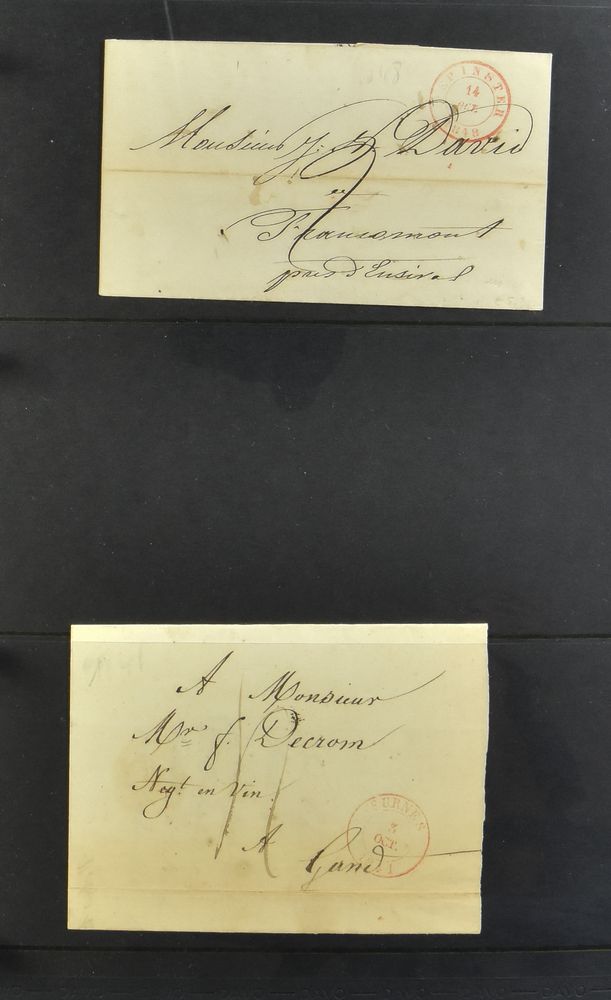 PINSTER
14
OCT.
1848
Monsieur J. J. David
en
Francomont
près d'Ensival
A Monsieur
Mr f. Decrom
Negt. en Vin
A
Gand
FURNES
3
OCT.